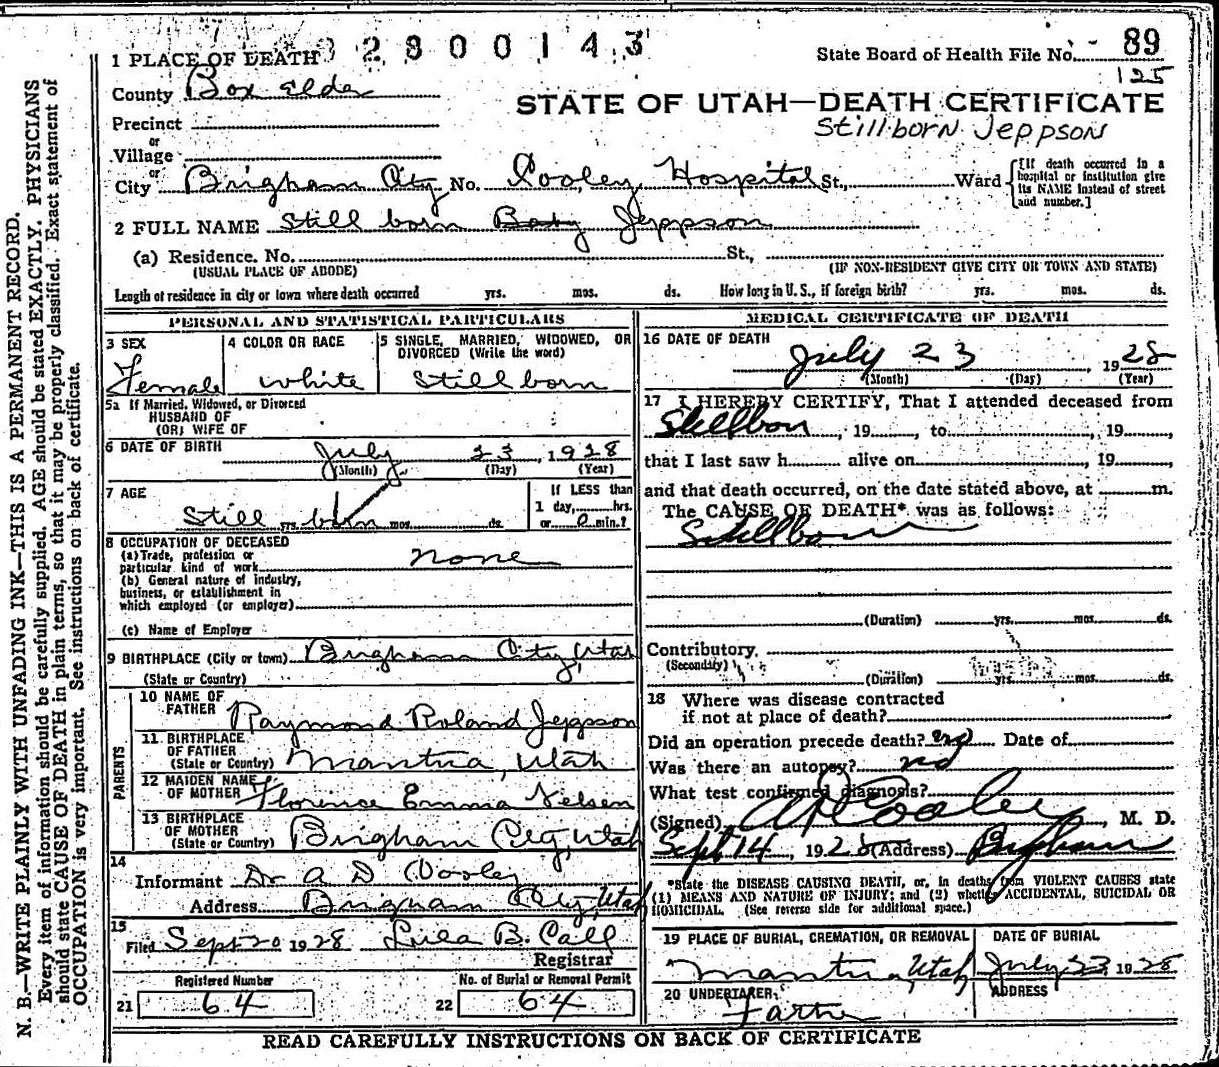 1 PLACE OF DEATH 2800143 State Board of Health File No. 89
125
County Box Elder
STATE OF UTAH—DEATH CERTIFICATE
Precinct
Stillborn Jeppson
or
Village
or
City Brigham City No. Cooley Hospital St., Ward [If death occurred in a hospital or institution give its NAME instead of street and number.]
2 FULL NAME Still born Baby Jeppson
(a) Residence. No. St.,
(USUAL PLACE OF ABODE) (IF NON-RESIDENT GIVE CITY OR TOWN AND STATE)
Length of residence in city or town where death occurred yrs. mos. ds. How long in U. S., if foreign birth? yrs. mos. ds.
PERSONAL AND STATISTICAL PARTICULARS
3 SEX 4 COLOR OR RACE 5 SINGLE, MARRIED, WIDOWED, OR
DIVORCED (Write the word)
Female white Still born
5a If Married, Widowed, or Divorced
HUSBAND OF
(OR) WIFE OF
6 DATE OF BIRTH July 23, 1928
(Month) (Day) (Year)
7 AGE If LESS than
1 day, hrs.
Still yrs. born mos. ds. or 0 min.?
8 OCCUPATION OF DECEASED
(a) Trade, profession or
particular kind of work none
(b) General nature of industry,
business, or establishment in
which employed (or employer)
(c) Name of Employer
9 BIRTHPLACE (City or town) Brigham City, Utah
(State or Country)
PARENTS
10 NAME OF
FATHER Raymond Roland Jeppson
11 BIRTHPLACE
OF FATHER
(State or Country) Mantua, Utah
12 MAIDEN NAME
OF MOTHER Florence Emma Nelsen
13 BIRTHPLACE
OF MOTHER
(State or Country) Brigham City, Utah
14
Informant Dr A D Cooley
Address Brigham City, Utah
15
Filed Sept 20 1928 Lula B. Call
Registrar
Registered Number No. of Burial or Removal Permit
21 64 22 64
MEDICAL CERTIFICATE OF DEATH
16 DATE OF DEATH
July 23 1928
(Month) (Day) (Year)
17 I HEREBY CERTIFY, That I attended deceased from
Stillborn, 19, to, 19,
that I last saw h alive on, 19,
and that death occurred, on the date stated above, at m.
The CAUSE OF DEATH* was as follows:
Stillborn
(Duration) yrs. mos. ds.
Contributory
(Secondary)
(Duration) yrs. mos. ds.
18 Where was disease contracted
if not at place of death?
Did an operation precede death? no Date of
Was there an autopsy? no
What test confirmed diagnosis?
(Signed) A D Cooley, M. D.
Sept 14, 1928 (Address) Brigham
*State the DISEASE CAUSING DEATH, or, in deaths from VIOLENT CAUSES state
(1) MEANS AND NATURE OF INJURY; and (2) whether ACCIDENTAL, SUICIDAL OR
HOMICIDAL. (See reverse side for additional space.)
19 PLACE OF BURIAL, CREMATION, OR REMOVAL DATE OF BURIAL
Mantua, Utah July 23 1928
20 UNDERTAKER ADDRESS
Father
READ CAREFULLY INSTRUCTIONS ON BACK OF CERTIFICATE
N. B.—WRITE PLAINLY WITH UNFADING INK—THIS IS A PERMANENT RECORD.
Every item of information should be carefully supplied. AGE should be stated EXACTLY. PHYSICIANS
should state CAUSE OF DEATH in plain terms, so that it may be properly classified. Exact statement of
OCCUPATION is very important. See instructions on back of certificate.